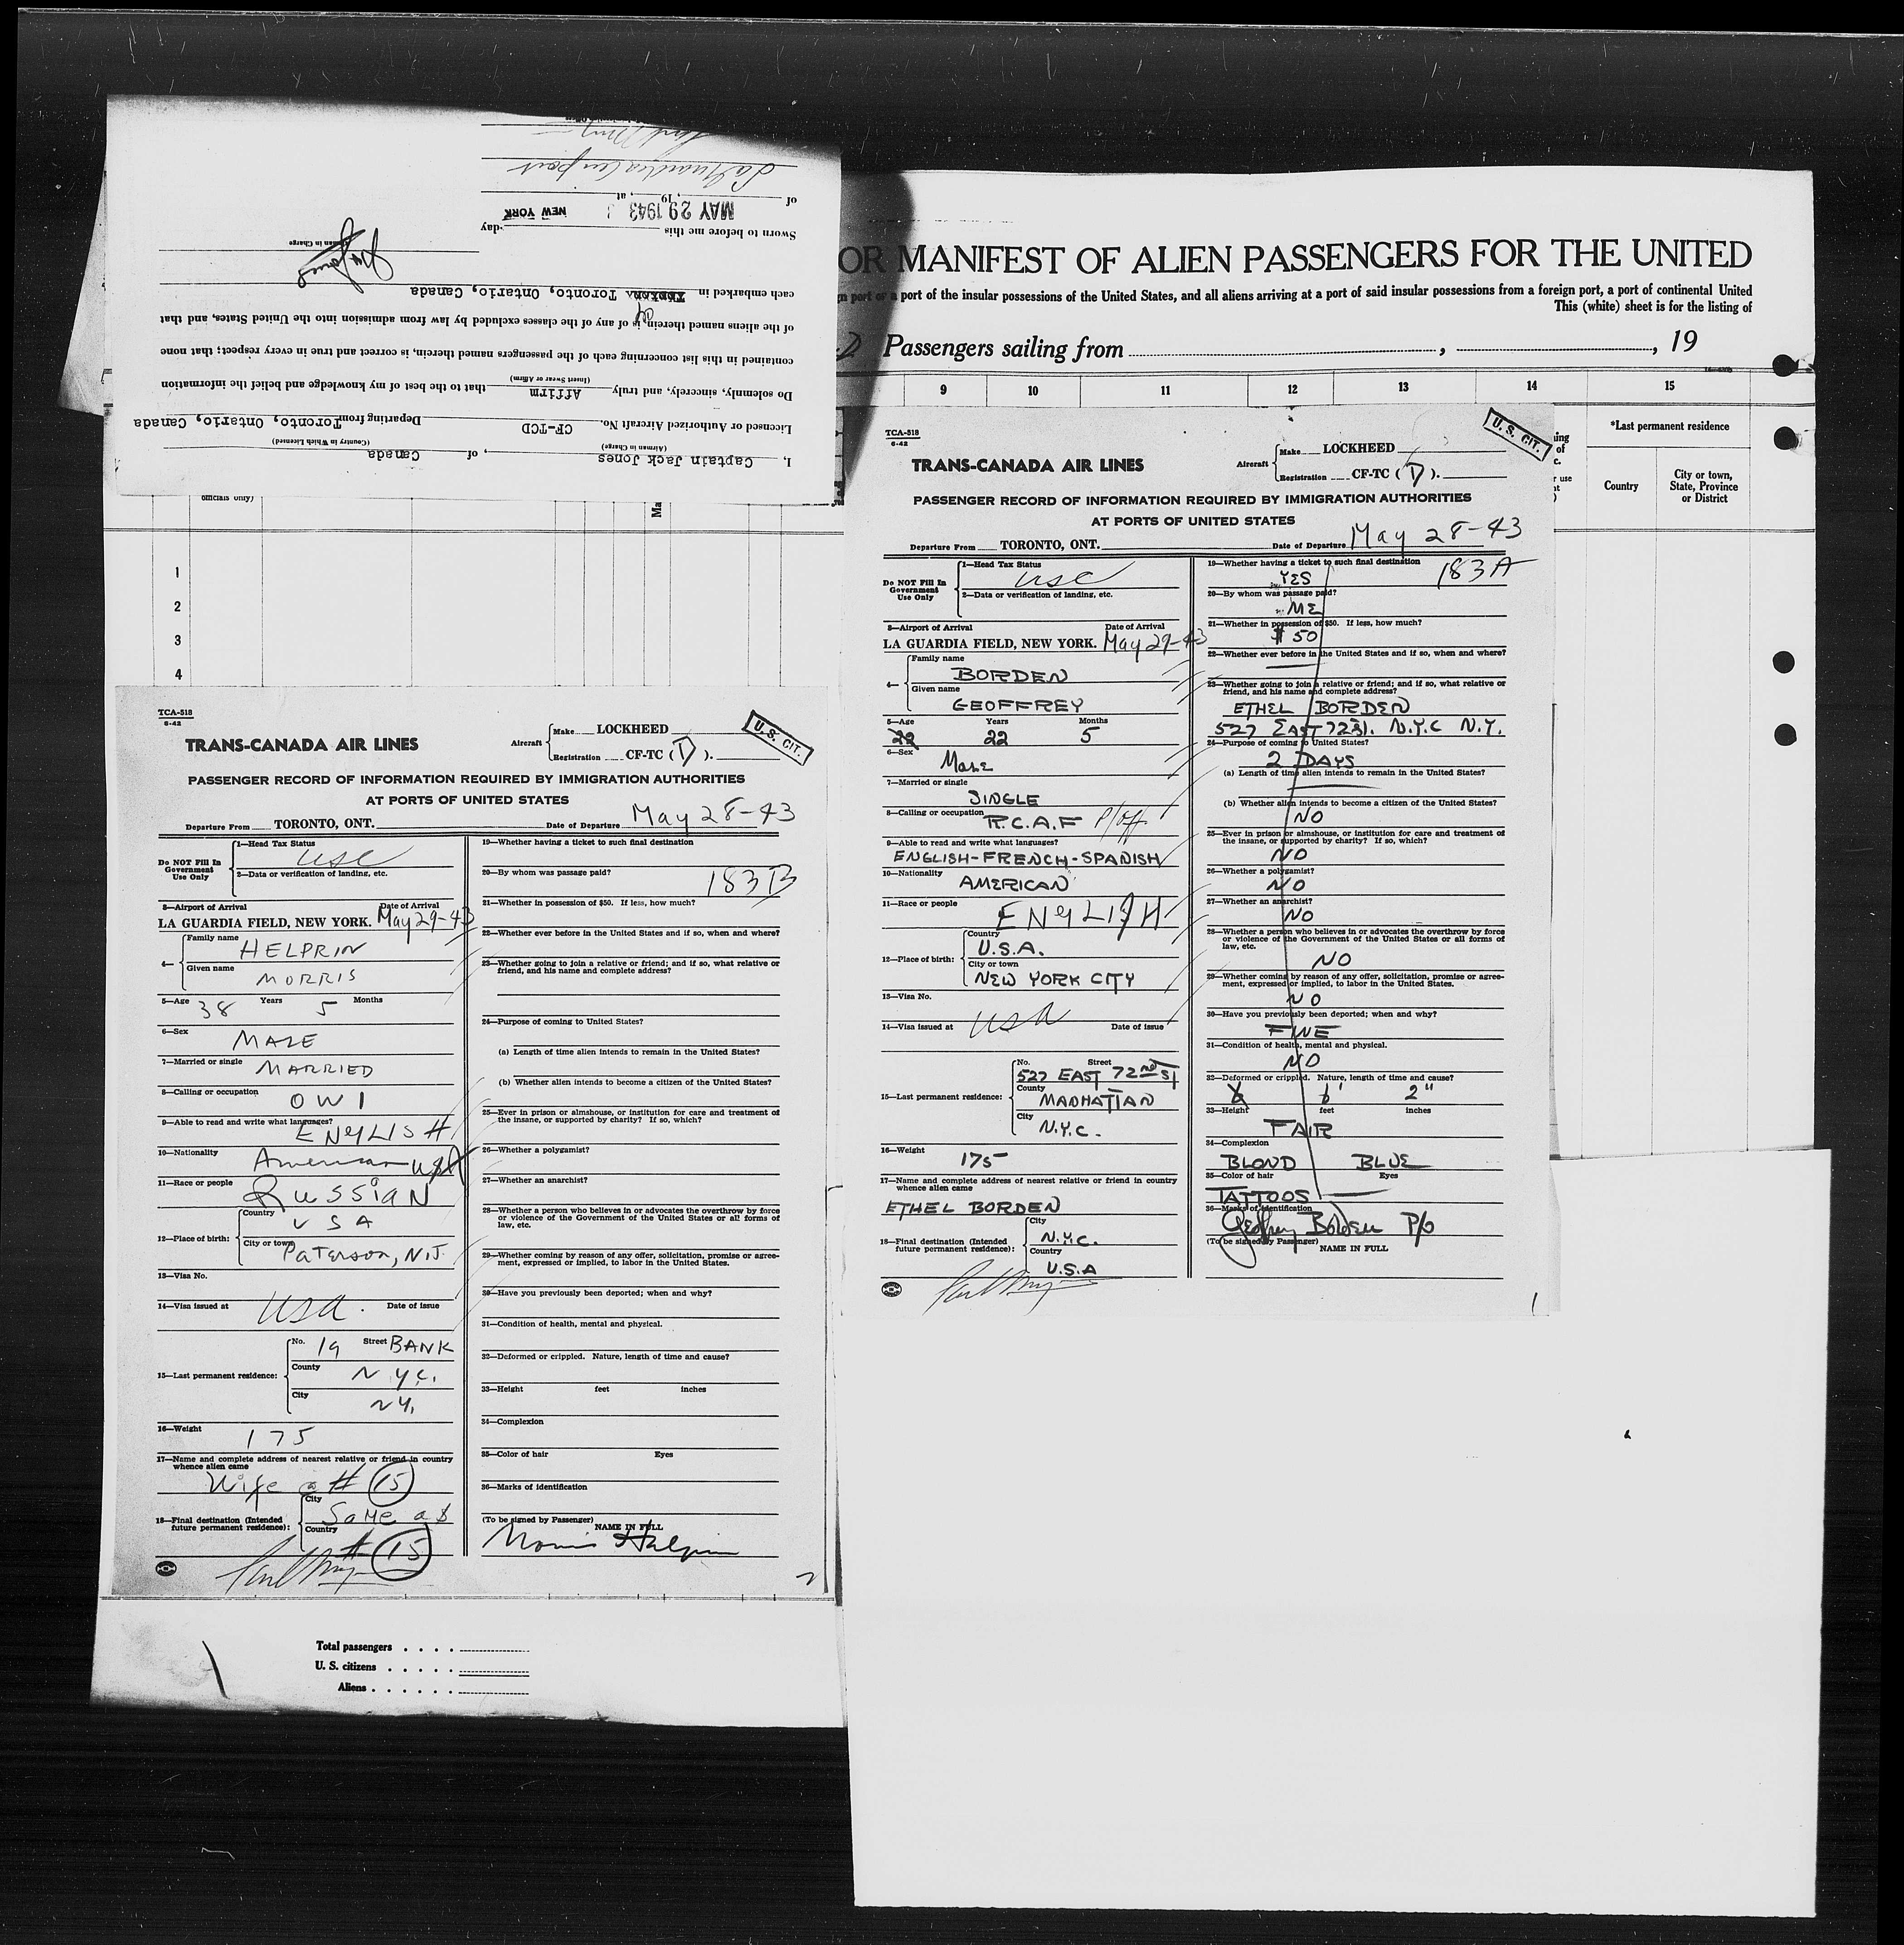 I, Captain Jack Jones, of Canada
(Airman in Charge) (Country in Which Licensed)
Licensed or Authorized Aircraft No. CF-TCD Departing from Toronto, Ontario, Canada
Do solemnly, sincerely, and truly Affirm that to the best of my knowledge and belief the information
(Insert Swear or Affirm)
contained in this list concerning each of the passengers named therein, is correct and true in every respect; that none
of the aliens named therein is of any of the classes excluded by law from admission into the United States, and that
each embarked in Toronto, Ontario, Canada
Airman in Charge
Sworn to before me this day
MAY 29 1943 NEW YORK
of , 19 , at
La Guardia Airport
OR MANIFEST OF ALIEN PASSENGERS FOR THE UNITED
port of the insular possessions of the United States, and all aliens arriving at a port of said insular possessions from a foreign port, a port of continental United
This (white) sheet is for the listing of
Passengers sailing from , , 19
9 10 11 12 13 14 15
*Last permanent residence
Country
City or town, State, Province or District
officials only)
1
2
3
4
TCA-518
6-42
TRANS-CANADA AIR LINES
Aircraft Make LOCKHEED
Registration CF-TC (D).
U.S. CIT.
PASSENGER RECORD OF INFORMATION REQUIRED BY IMMIGRATION AUTHORITIES
AT PORTS OF UNITED STATES
Departure From TORONTO, ONT. Date of Departure May 28-43
Do NOT Fill In Government Use Only
1—Head Tax Status
USC
2—Data or verification of landing, etc.
3—Airport of Arrival Date of Arrival
LA GUARDIA FIELD, NEW YORK. May 29-43
4— Family name
HELPRIN
Given name
MORRIS
5—Age 38 Years 5 Months
6—Sex
MALE
7—Married or single
MARRIED
8—Calling or occupation
OWI
9—Able to read and write what languages?
ENGLISH
10—Nationality
American USA
11—Race or people
RUSSIAN
12—Place of birth: Country
USA
City or town
PATERSON, N.J.
13—Visa No.
14—Visa issued at USA. Date of issue
15—Last permanent residence: No. 19 Street BANK
County
N.Y.C.
City
N.Y.
16—Weight
175
17—Name and complete address of nearest relative or friend in country
whence alien came
Wife @ # 15
18—Final destination (Intended
future permanent residence): City
Same as
Country
# 15
19—Whether having a ticket to such final destination
20—By whom was passage paid?
183B
21—Whether in possession of $50. If less, how much?
22—Whether ever before in the United States and if so, when and where?
23—Whether going to join a relative or friend; and if so, what relative or
friend, and his name and complete address?
24—Purpose of coming to United States?
(a) Length of time alien intends to remain in the United States?
(b) Whether alien intends to become a citizen of the United States?
25—Ever in prison or almshouse, or institution for care and treatment of
the insane, or supported by charity? If so, which?
26—Whether a polygamist?
27—Whether an anarchist?
28—Whether a person who believes in or advocates the overthrow by force
or violence of the Government of the United States or all forms of
law, etc.
29—Whether coming by reason of any offer, solicitation, promise or agree-
ment, expressed or implied, to labor in the United States.
30—Have you previously been deported; when and why?
31—Condition of health, mental and physical.
32—Deformed or crippled. Nature, length of time and cause?
33—Height feet inches
34—Complexion
35—Color of hair Eyes
36—Marks of identification
(To be signed by Passenger) NAME IN FULL
Morris Helprin
2
Total passengers
U. S. citizens
Aliens
TCA-518
6-42
TRANS-CANADA AIR LINES
Aircraft Make LOCKHEED
Registration CF-TC (D).
U.S. CIT.
PASSENGER RECORD OF INFORMATION REQUIRED BY IMMIGRATION AUTHORITIES
AT PORTS OF UNITED STATES
Departure From TORONTO, ONT. Date of Departure May 28-43
Do NOT Fill In Government Use Only
1—Head Tax Status
USC
2—Data or verification of landing, etc.
3—Airport of Arrival Date of Arrival
LA GUARDIA FIELD, NEW YORK. May 29-43
4— Family name
BORDEN
Given name
GEOFFREY
5—Age Years Months
22 22 5
6—Sex
MALE
7—Married or single
SINGLE
8—Calling or occupation
R.C.A.F P/Off.
9—Able to read and write what languages?
ENGLISH-FRENCH-SPANISH
10—Nationality
AMERICAN
11—Race or people
ENGLISH
12—Place of birth: Country
U.S.A.
City or town
NEW YORK CITY
13—Visa No.
14—Visa issued at USA Date of issue
15—Last permanent residence: No. Street
527 EAST 72ND ST
County
MANHATTAN
City
N.Y.C.
16—Weight
175
17—Name and complete address of nearest relative or friend in country
whence alien came
ETHEL BORDEN
18—Final destination (Intended
future permanent residence): City
N.Y.C.
Country
U.S.A
19—Whether having a ticket to such final destination
YES 183A
20—By whom was passage paid?
ME
21—Whether in possession of $50. If less, how much?
$50
22—Whether ever before in the United States and if so, when and where?
23—Whether going to join a relative or friend; and if so, what relative or
friend, and his name and complete address?
ETHEL BORDEN
527 EAST 72 St. N.Y.C N.Y.
24—Purpose of coming to United States?
2 DAYS
(a) Length of time alien intends to remain in the United States?
(b) Whether alien intends to become a citizen of the United States?
NO
25—Ever in prison or almshouse, or institution for care and treatment of
the insane, or supported by charity? If so, which?
NO
26—Whether a polygamist?
NO
27—Whether an anarchist?
NO
28—Whether a person who believes in or advocates the overthrow by force
or violence of the Government of the United States or all forms of
law, etc.
NO
29—Whether coming by reason of any offer, solicitation, promise or agree-
ment, expressed or implied, to labor in the United States.
NO
30—Have you previously been deported; when and why?
FINE
31—Condition of health, mental and physical.
NO
32—Deformed or crippled. Nature, length of time and cause?
6 6' 2"
33—Height feet inches
FAIR
34—Complexion
BLOND BLUE
35—Color of hair Eyes
TATTOOS
36—Marks of identification
Geoffrey Borden P/O
(To be signed by Passenger) NAME IN FULL
1